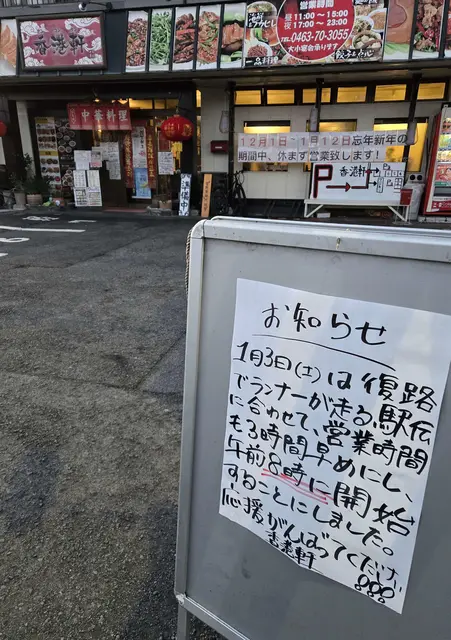 香港軒
営業時間
昼 11:00〜15:00
夜 17:00〜23:00
大小宴会承ります
TEL 0463-70-3055
一品料理
中華料理
12月1日〜1月12日忘年新年の
期間中、休まず営業致します!
P
香港軒
お知らせ
1月3日(土)は復路
でランナーが走る駅伝
に合わせて、営業時間
も3時間早めにし、
午前8時に開始
することにしました。
応援がんばってくださいい
香港軒